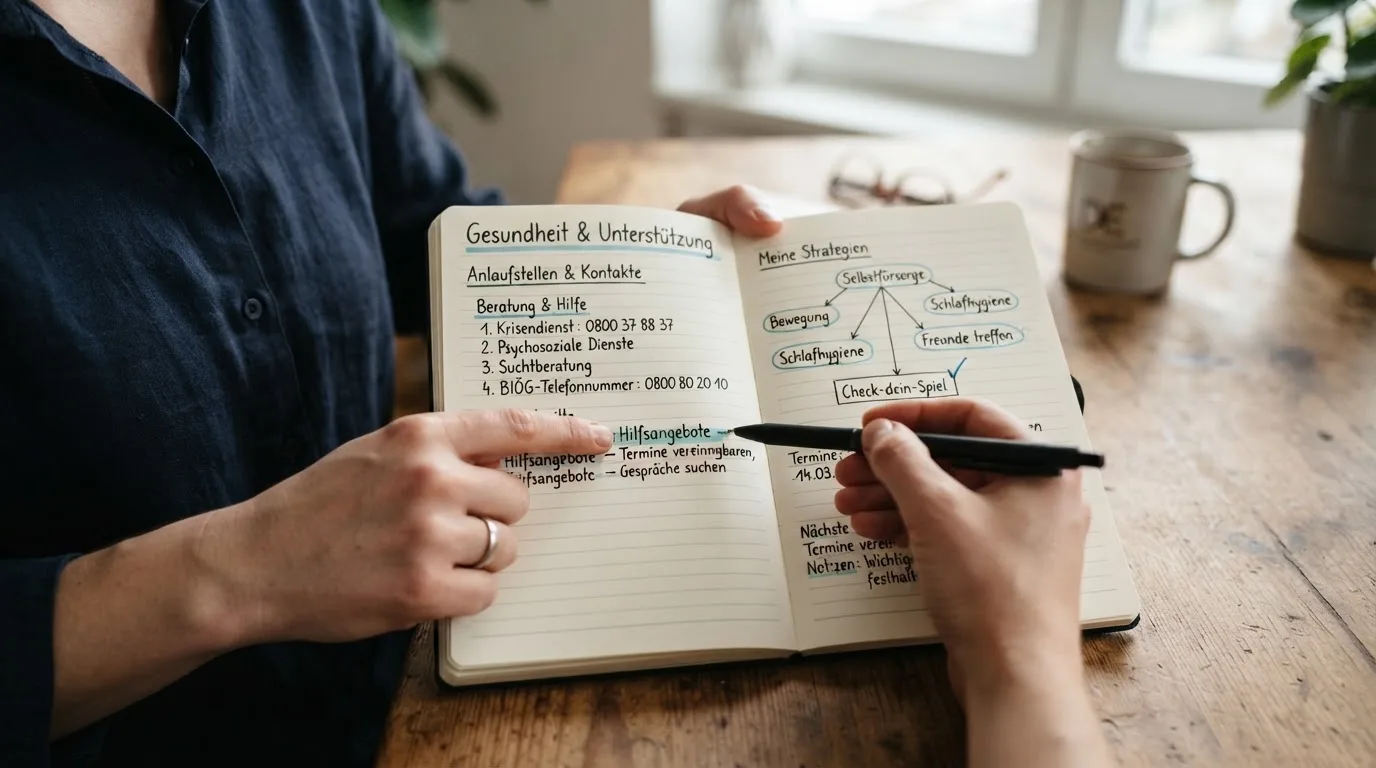 Gesundheit & Unterstützung
Anlaufstellen & Kontakte
Beratung & Hilfe
1. Krisendienst: 0800 37 88 37
2. Psychosoziale Dienste
3. Suchtberatung
4. BIÖG-Telefonnummer: 0800 80 20 10
Hilfsangebote
Hilfsangebote – Termine vereinngbaren,
– Gespräche suchen
Meine Strategien
Selbstfürserge
Bewegung
Schlafhygiene
Schlafhygiene
Freunde treffen
Check-dein-Spiel
Termine:
14.03.
Nächste
Termine
Notzen: Wichtig